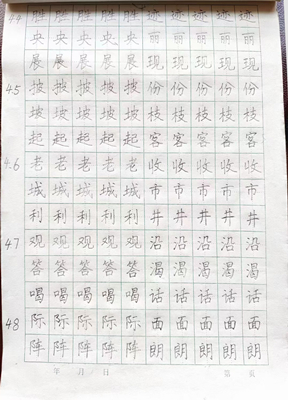 44 胜胜胜胜胜迹迹迹迹迹
央央央央央丽丽丽丽丽
展展展展展现现现现现
45 披披披披披份份份份份
坡坡坡坡坡枝枝枝枝枝
起起起起起客客客客客
46 老老老老老收收收收收
城城城城城市市市市市
利利利利利井井井井井
47 观观观观观沿沿沿沿沿
答答答答答渴渴渴渴渴
喝喝喝喝喝话话话话话
48 际际际际际面面面面面
阵阵阵阵阵朗朗朗朗朗
年 月 日 第 页